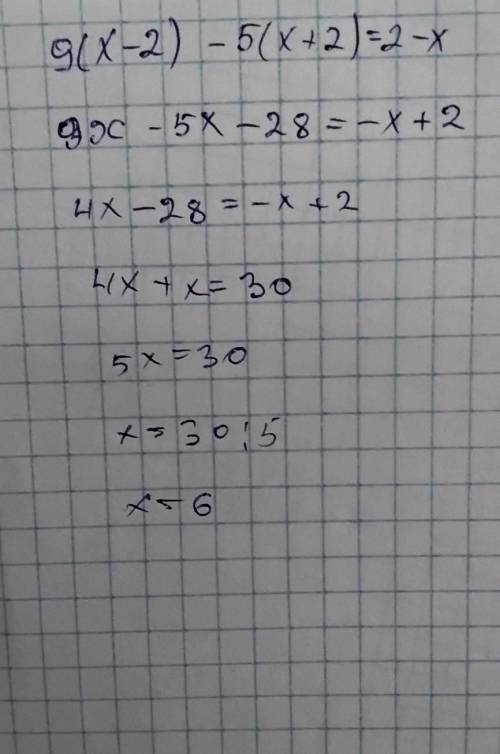 9(x-2) -5(x+2)=2-x
9x -5x-28=-x+2
4x-28=-x+2
4x+x=30
5x=30
x=30:5
x=6